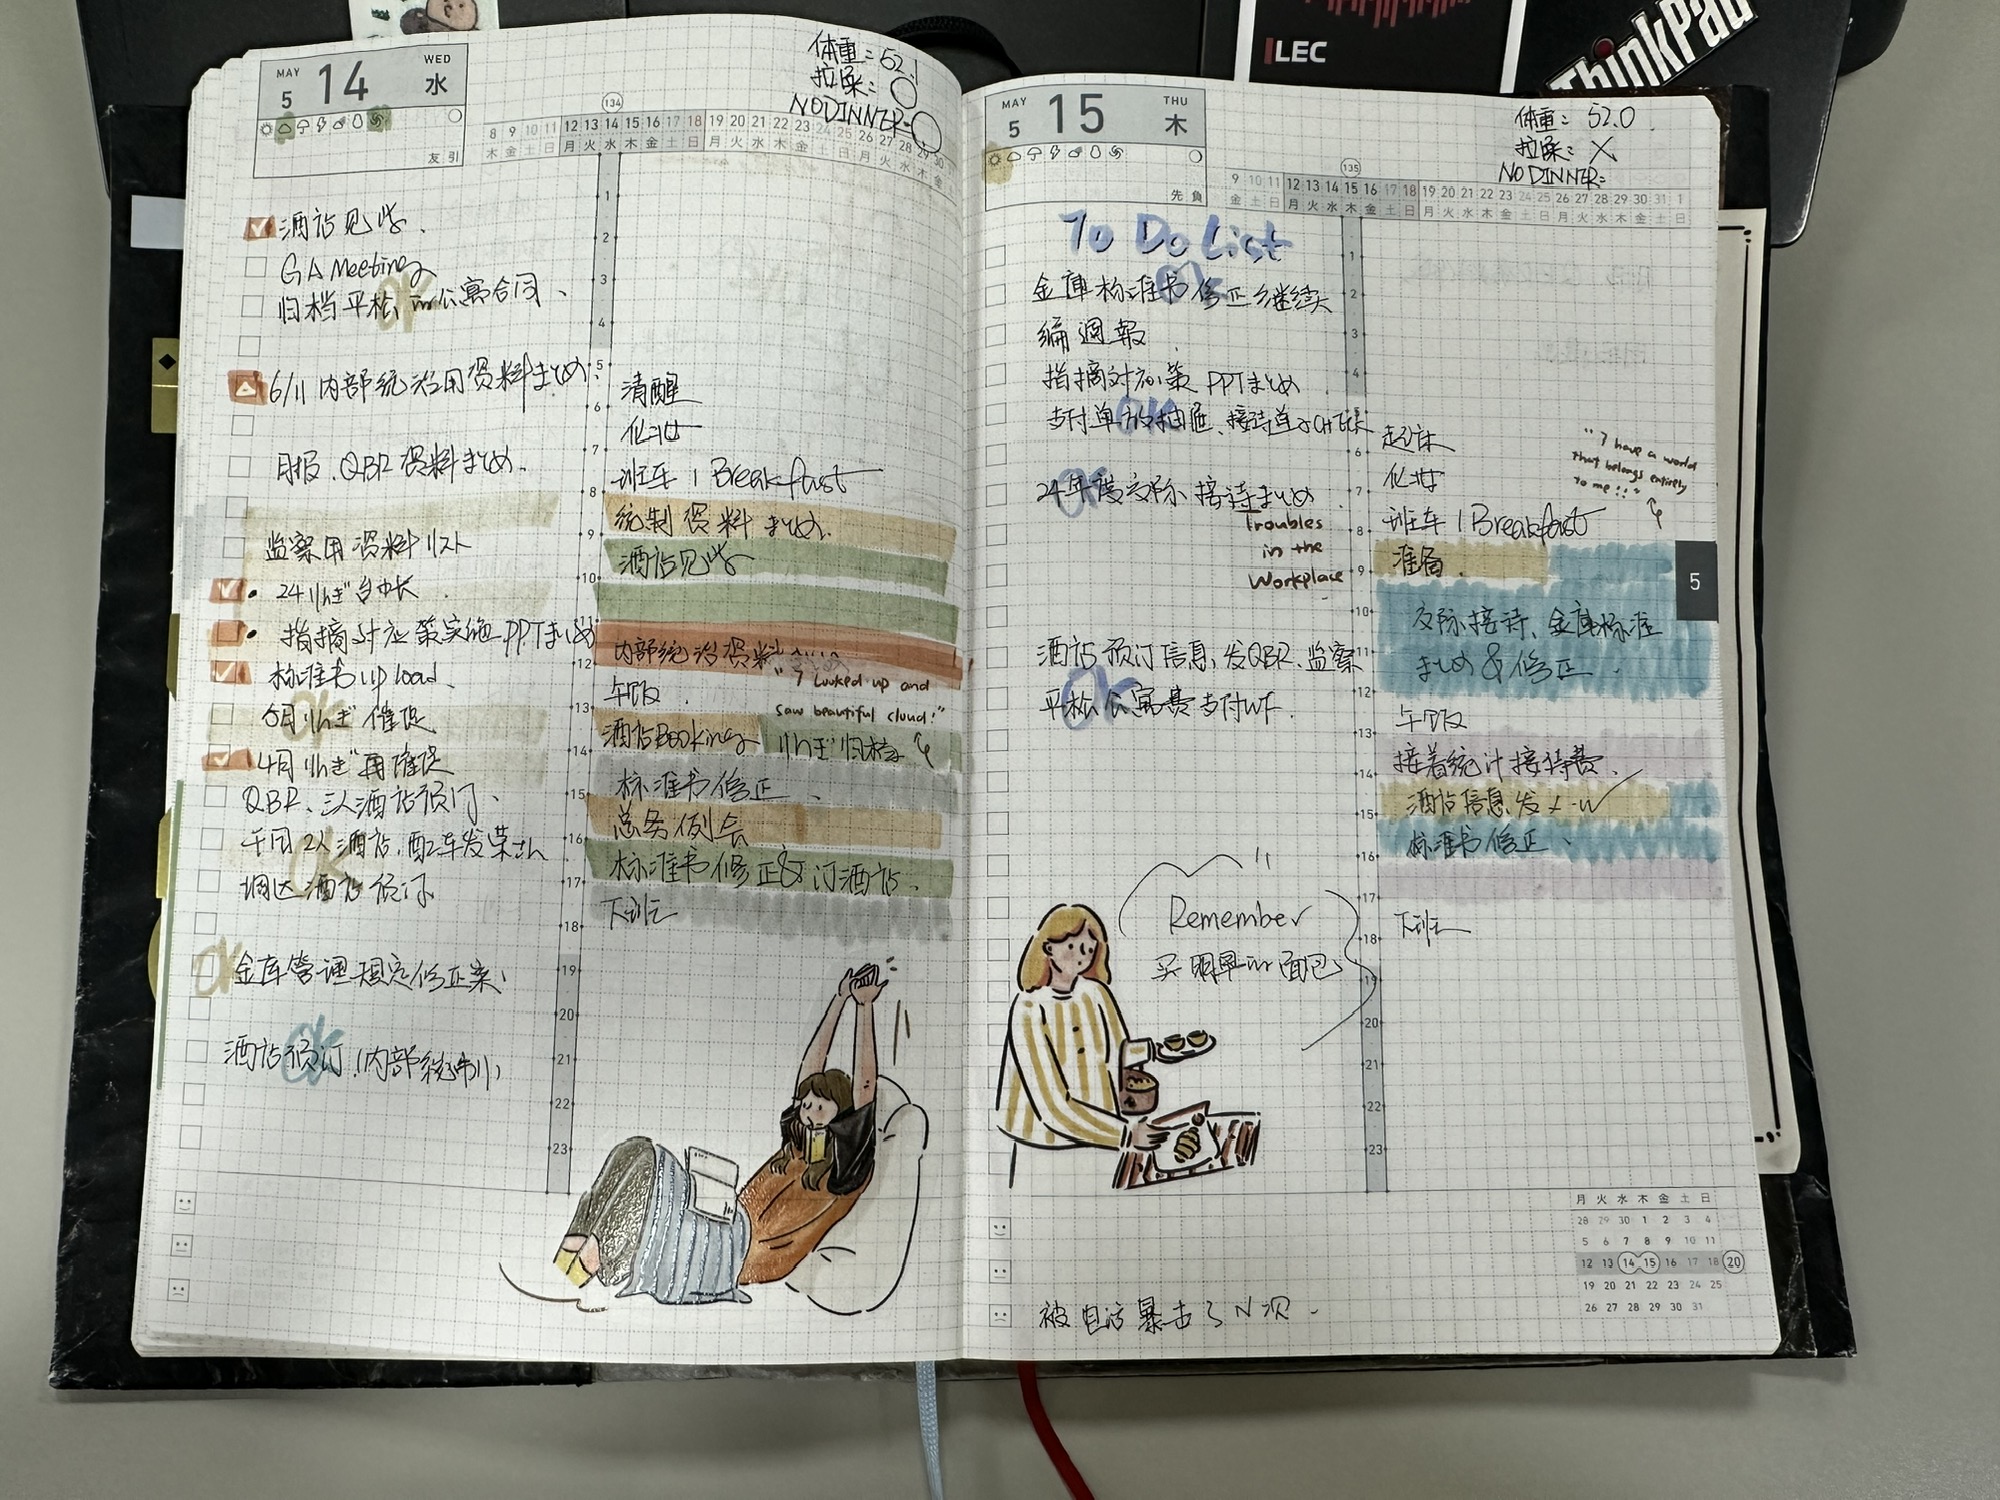 LEC
ThinkPad
MAY
WED
5
14
水
友引
134
8 9 10 11 12 13 14 15 16 17 18 19 20 21 22 23 24 25 26 27 28 29 30
木 金 土 日 月 火 水 木 金 土 日 月 火 水 木 金 土 日 月 火 水 木 金
体重: 52.1
NO DINNER=○
酒店见学.
GA Meeting
归档平松 公寓合同、
OK
6/11 内部统治用资料まとめ.
月报.QBR资料まとめ.
监察用资料リスト
24 りんぎ台中长
• 指摘对应策实施PPTまとめ
标准书up load.
6月りんぎ催促
OK
4月りんぎ再催促
QBR、三人酒店预订、
2人酒店.配车
OK
酒店预订
金库管理规定修正案、
OK
酒店预订(内部统制)
OK
1
2
3
4
5
清醒
6
化妆
7
班车 / Breakfast
8
统制资料まとめ.
9
酒店见学
10
11
内部统治资料
12
"I looked up and
saw beautiful cloud!"
午饭.
13
酒店Booking りんぎ归档
14
标准书修正、
15
总务例会
16
标准书修正&订酒店.
17
下班
18
19
20
21
22
23
MAY
THU
5
15
木
先負
135
9 10 11 12 13 14 15 16 17 18 19 20 21 22 23 24 25 26 27 28 29 30 31 1
金 土 日 月 火 水 木 金 土 日 月 火 水 木 金 土 日 月 火 水 木 金 土 日
体重: 52.0
NO DINNER=
To Do List
金庫标准书修正继续
OK
编週報
指摘对応策PPTまとめ
支付单放抽屉、接待单
OK
24年度交际接待まとめ
OK
Troubles
in the
Workplace
酒店预订信息、发QBR、监察
平松公寓费支付WF.
OK
Remember
买明早的面包
被电话暴击了N次.
1
2
3
4
起床
6
"I have a world
that belongs entirely
to me!!"
化妆
7
班车 / Breakfast
8
准备.
9
5
10
交际接待、金庫标准
まとめ&修正
11
12
午饭
13
接着统计接待费.
14
酒店信息发メール
15
标准书修正、
16
17
下班
18
19
20
21
22
23
月 火 水 木 金 土 日
28 29 30 1 2 3 4
5 6 7 8 9 10 11
12 13 14 15 16 17 18 20
19 20 21 22 23 24 25
26 27 28 29 30 31